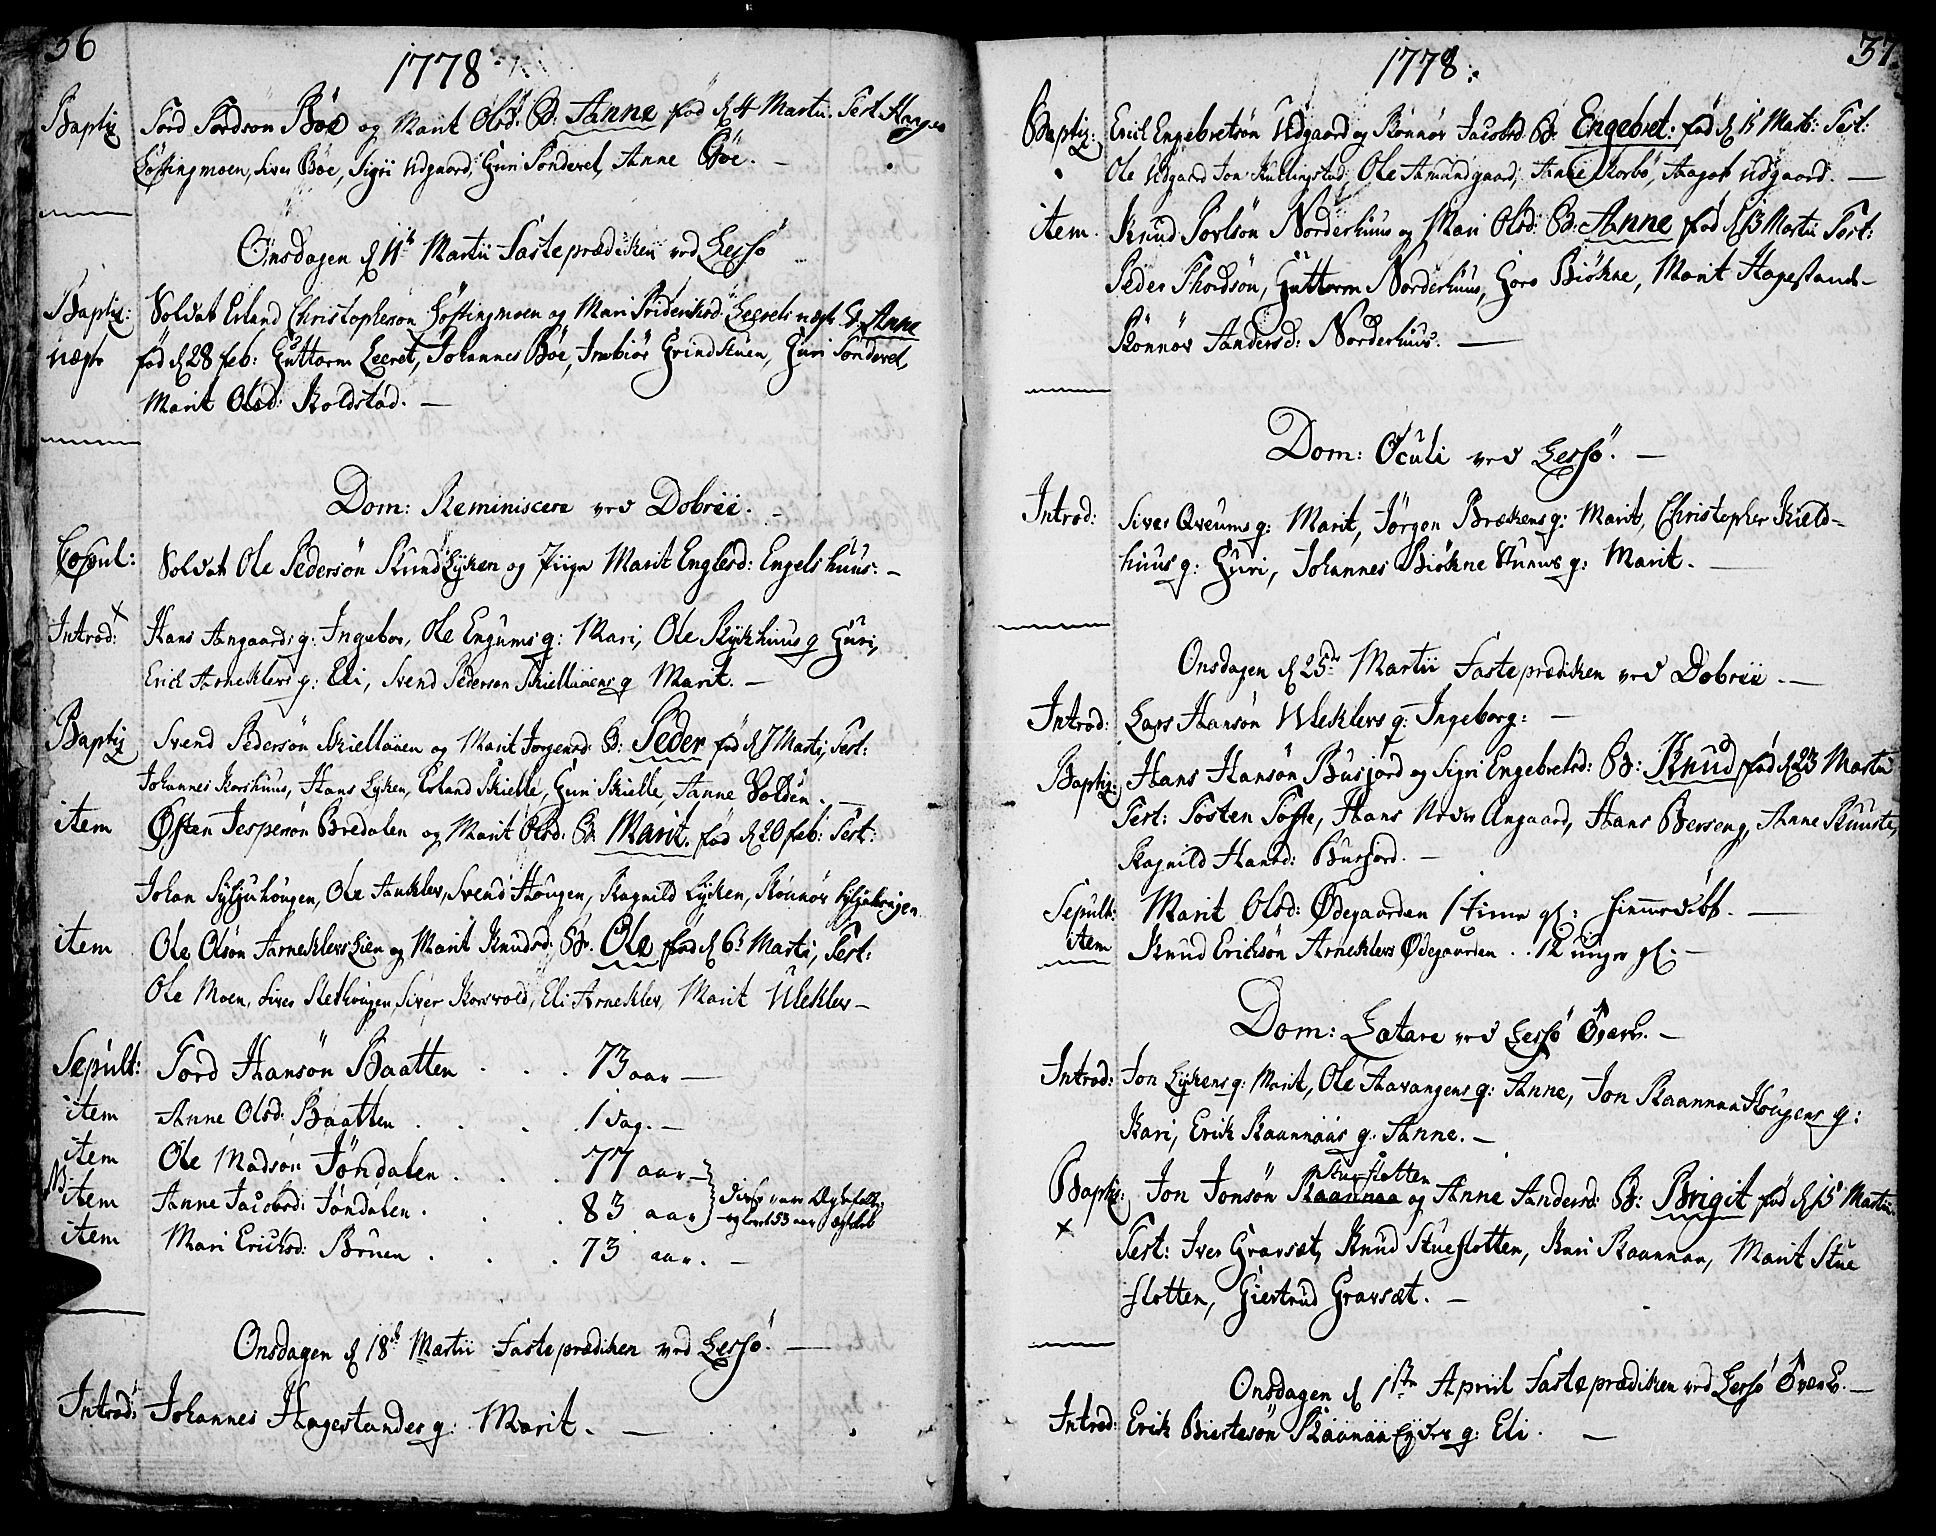 36
1778
Baptiz Tord Tordson Böe og Marit Olsd: B: Anne fød d 4 Martii. Test Hans
Løftingmoen, Siver Böe, Sigri Udgaard, Guri Sonderel, Anne Böe. —
Onsdagen d 11t Martii Fasteprædiken ved Lessø
Baptiz: Soldat Erland Christopherson Løftingmoen og Mari Fridericksd. B. Anne
uægte fød d 28 feb: Guttorm, Johannes Böe, Imbiør Grindstuen, Guri Sonderel,
Marit Olsd: Koldstad. —
Dom: Reminiscere ved Dobrii. —
Copul: Soldat Ole Pedersøn Rundlyken og Piige Marit Englesd: Engelshuus: —
Introd: Hans Angaards q: Ingebor, Ole Engums q: Mari, Ole Rykhuus q Guri,
Erich Arneklevs q: Eli, Svend Pederson Skielluaens q Marit. —
Baptiz Svend Pedersøn Skielluaen og Marit Jorgensd. B: Peder fød d 7 Marti, Test:
Johannes Korshuus, Hans Lyken, Erland Skielle, Guri Skielle, Anne Volden. —
item Østen Jespersøn Bredalen og Marit Olsd: B: Marit. fød d 20 feb: Test:
Johan Syljuhougen, Ole Anklev, Svend Hougen, Ragnild Lyken, Rönnöv Syljuhougen
item Ole Olsøn Arneklevslien og Marit Knudsd: B: Ole fød d 6t Marti, Test:
Ole Moen, Siver Slethougen, Siver Korsvold, Eli Arneklev, Marit Uleklev —
Sepult: Tord Hansøn Baatten . . . 73 aar —
item Anne Olsd: Baatten . . . 1 dag. —
item Ole Madsøn Jøndalen . . . 77 aar —
NB item Anne Jacobsd: Jøndalen . . . 83 aar
item Mari Ericksd: Bruen . . . 73 aar. —
Onsdagen d 18t Martii Fasteprædiken ved Lessø. —
Introd: Johannes Hagestandes q: Marit. —
37.
1778:
Baptiz: Erich Engebretsön Udgaard og Rönnöv Jacobsd: B: Engebret: fød d 15 Mart: Test:
Ole Udgaard Jon Kullingstad, Ole Amundgaard, Anne Korbö, Aagot Udgaard. —
item. Knud Torlsön Norderhuus og Mari Olsd: B: Anne fød d 13 Martii Test:
Peder Thordsön, Guttorm Norderhuus, Goro Biökne, Marit Hagestand-
Rönnöv Andersd: Norderhuus. —
Dom: Oculi ved Lessø. —
Introd: Siver Qveums q: Marit, Jörgen Brækens q: Marit, Christopher Kield-
huus q: Guri, Johannes Biökne Stuens q: Marit. —
Onsdagen d 25de Martii Fasteprædiken ved Dobrii. —
Introd: Lars Hansön Uleklevs q: Ingeborg: —
Baptiz: Hans Hansön Busjord og Sigri Engebretsd: B: Knud fød d 23 Martii
Test: Tosten Tofte, Hans Neder Angaard, Hans Berseng, Anne Ruuste,
Ragnild Hansd: Busjord. —
Sepult: Marit Olsd: Ødegaarden 1 time gl: hiemmedöbt. —
item Knud Ericksön Arneklevs Ødegaarden . . 12 uger gl: —
Dom: Lætare ved Lessø Øverb. —
Introd: Jon Lykens q: Marit, Ole Aavangens q: Anne, Jon Raannaa Hougens q:
Kari, Erik Raannaas q: Anne. —
Stueflotten
Baptiz: Jon Jonsön Raannaa og Anne Andersd: B: Brigit fød d 15 Martii.
Test: Iver Gravsæt, Knud Stueflotten, Kari Raannaa, Marit Stue
flotten, Giertrud Gravsæt. —
Onsdagen d 1ste April Fasteprædiken ved Lessø Øverb. —
Introd: Erik Biertesön Raanaa Eydes q: Eli. —